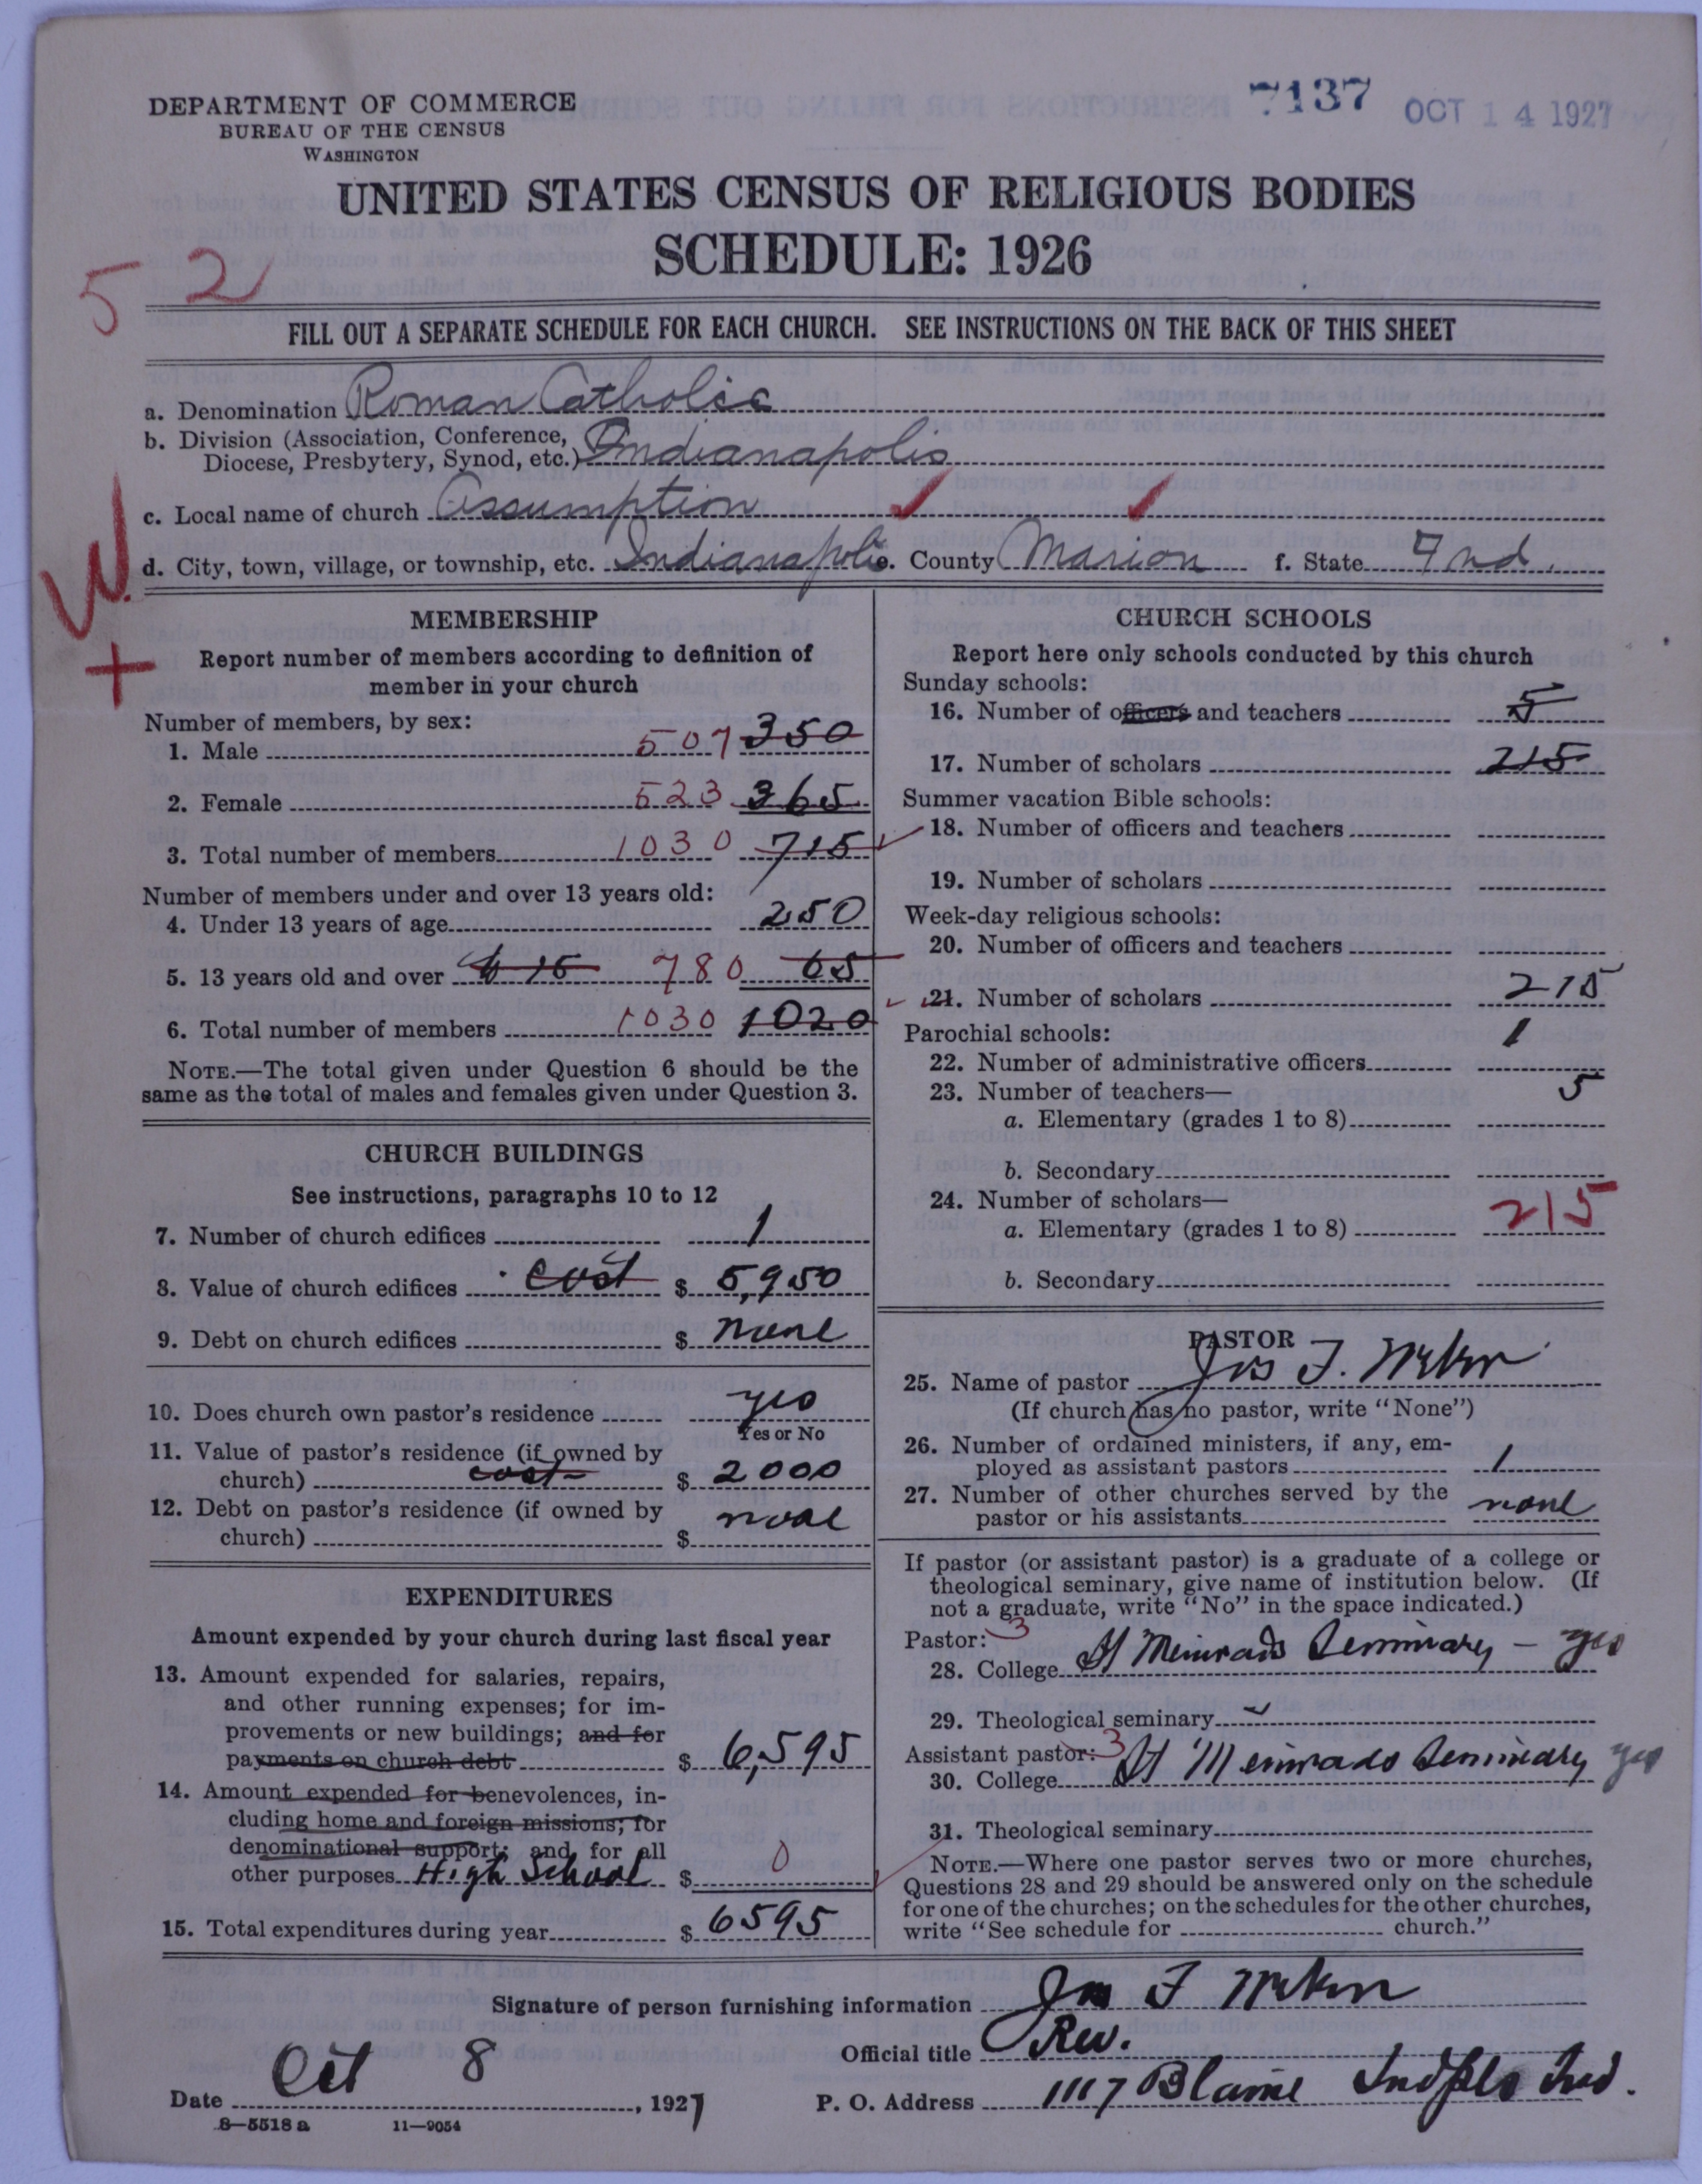 7137 OCT 14 1927
DEPARTMENT OF COMMERCE
BUREAU OF THE CENSUS
WASHINGTON
UNITED STATES CENSUS OF RELIGIOUS BODIES
SCHEDULE: 1926
52
FILL OUT A SEPARATE SCHEDULE FOR EACH CHURCH. SEE INSTRUCTIONS ON THE BACK OF THIS SHEET
a. Denomination Roman Catholic
b. Division (Association, Conference,
Diocese, Presbytery, Synod, etc.) Indianapolis
c. Local name of church Assumption
d. City, town, village, or township, etc. Indianapolis. County Marion f. State Ind.
W
+
MEMBERSHIP
Report number of members according to definition of
member in your church
Number of members, by sex:
1. Male 507 350
2. Female 523 365
3. Total number of members 1030 715
Number of members under and over 13 years old:
4. Under 13 years of age 250
5. 13 years old and over 615 780 65
6. Total number of members 1030 1020
NOTE.—The total given under Question 6 should be the
same as the total of males and females given under Question 3.
CHURCH BUILDINGS
See instructions, paragraphs 10 to 12
7. Number of church edifices 1
8. Value of church edifices cost $ 5,950
9. Debt on church edifices $ none
10. Does church own pastor's residence yes
Yes or No
11. Value of pastor's residence (if owned by
church) cost $ 2000
12. Debt on pastor's residence (if owned by
church) $ none
EXPENDITURES
Amount expended by your church during last fiscal year
13. Amount expended for salaries, repairs,
and other running expenses; for im-
provements or new buildings; and for
payments on church debt $ 6,595
14. Amount expended for benevolences, in-
cluding home and foreign missions; for
denominational support; and for all
other purposes High School $ 0
15. Total expenditures during year $ 6595
CHURCH SCHOOLS
Report here only schools conducted by this church
Sunday schools:
16. Number of officers and teachers 5
17. Number of scholars 215
Summer vacation Bible schools:
18. Number of officers and teachers
19. Number of scholars
Week-day religious schools:
20. Number of officers and teachers
21. Number of scholars 215
Parochial schools:
22. Number of administrative officers 1
23. Number of teachers—
a. Elementary (grades 1 to 8) 5
b. Secondary
24. Number of scholars—
a. Elementary (grades 1 to 8) 215
b. Secondary
PASTOR
25. Name of pastor Jos F.
(If church has no pastor, write "None")
26. Number of ordained ministers, if any, em-
ployed as assistant pastors 1
27. Number of other churches served by the
pastor or his assistants none
If pastor (or assistant pastor) is a graduate of a college or
theological seminary, give name of institution below. (If
not a graduate, write "No" in the space indicated.)
Pastor: 3
28. College St Meinrads Seminary — yes
29. Theological seminary
Assistant pastor: 3
30. College St Meinrads Seminary yes
31. Theological seminary
NOTE.—Where one pastor serves two or more churches,
Questions 28 and 29 should be answered only on the schedule
for one of the churches; on the schedules for the other churches,
write "See schedule for church."
Signature of person furnishing information Jos F
Official title Rev.
Date Oct 8, 1927 P. O. Address 1117 Blaine Indpls Ind.
8—5518 a 11—9054